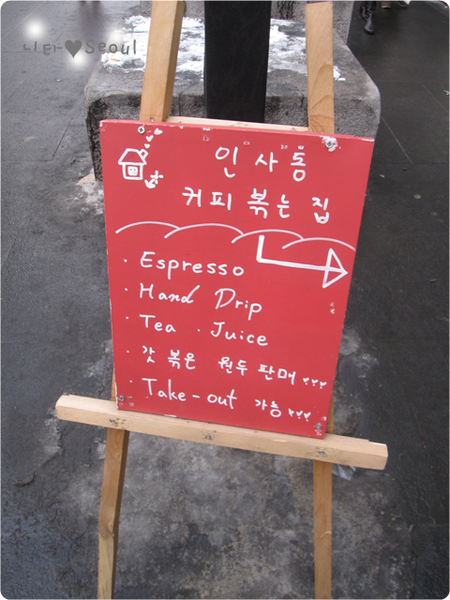 니타♥Seoul
인사동
커피 볶는 집
· Espresso
· Hand Drip
· Tea · Juice
· 갓 볶은 원두 판매 ♥♥♥
· Take-out 가능 ♥♥♥